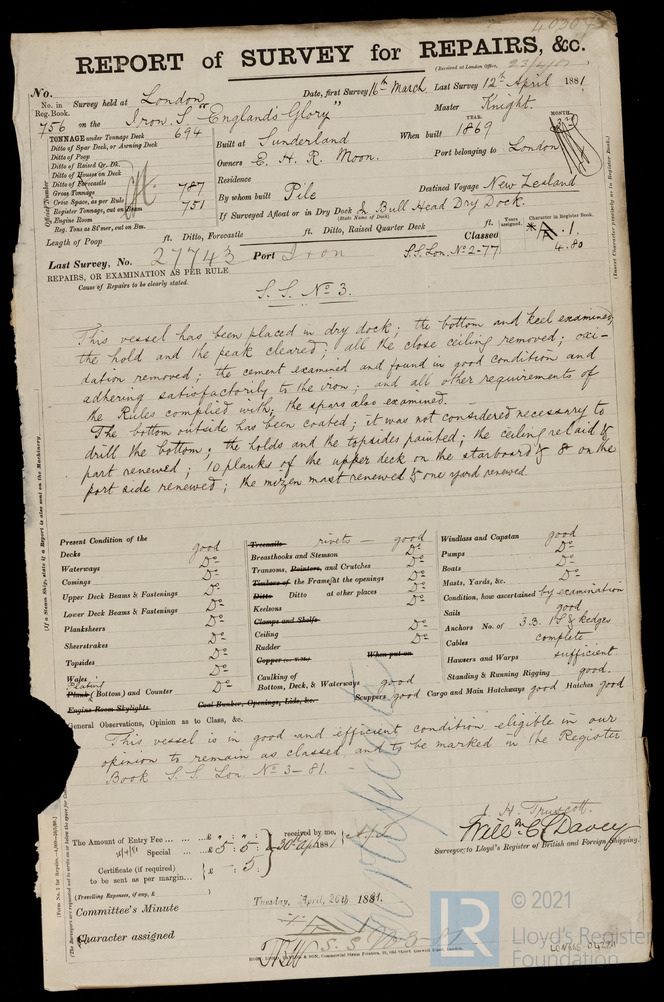 40307
REPORT of SURVEY for REPAIRS, &c.
(Received at London Office, 23/4/81
No.
No. in Reg. Book. 756
Survey held at London Date, first Survey 16th March Last Survey 12th April 1881
on the Iron S. "England's Glory" Master Knight
TONNAGE under Tonnage Deck 694
Ditto of Spar Deck, or Awning Deck
Ditto of Poop
Ditto of Raised Qr. Dk.
Ditto of House on Deck
Ditto of Forecastle
Gross Tonnage 787
Crew Space, as per Rule
Register Tonnage, cut on Beam 751
Engine Room
Reg. Tons as St'mer, cut on Bm.
Official Number
Built at Sunderland When built YEAR. 1869 MONTH.
Owners E. H. R. Moon. Port belonging to London
Residence
By whom built Pile Destined Voyage New Zealand
If Surveyed Afloat or in Dry Dock & Bull Head Dry Dock.
(State Name of Dock)
Length of Poop ft. Ditto, Forecastle ft. Ditto, Raised Quarter Deck ft. Classed Years assigned. Character in Register Book. *A.1.
4.80
Last Survey, No. 27743 Port Iron S.S. Lon. No 2-77
(Insert Character precisely as in Register Book.)
REPAIRS, OR EXAMINATION AS PER RULE
Cause of Repairs to be clearly stated.
S. S. No 3.
This vessel has been placed in dry dock; the bottom and keel examined;
the hold and the peak cleared; all the close ceiling removed; oxi-
dation removed; the cement examined and found in good condition and
adhering satisfactorily to the iron; and all other requirements of
the Rules complied with; the spars also examined.
The bottom outside has been coated; it was not considered necessary to
drill the bottom; the holds and the topsides painted; the ceiling relaid &
part renewed; 10 planks of the upper deck on the starboard & 8 on the
port side renewed; the mizen mast renewed & one yard renewed.
(If a Steam Ship, state if a Report is also sent on the Machinery.
Present Condition of the
Decks good
Waterways Do
Comings Do
Upper Deck Beams & Fastenings Do
Lower Deck Beams & Fastenings Do
Planksheers Do
Sheerstrakes Do
Topsides Do
Wales Do
Plating
Plank (Bottom) and Counter Do
Engine Room Skylights Coal Bunker, Openings, Lids, &c.
Treenails rivets — good
Breasthooks and Stemson Do
Transoms, Pointers, and Crutches Do
Timbers of the Frame, at the openings Do
Ditto Ditto at other places Do
Keelsons Do
Clamps and Shelfs
Ceiling Do
Rudder Do
Copper (or Y.M.) When put on
Caulking of Bottom, Deck, & Waterways good
Windlass and Capstan good
Pumps Do
Boats Do
Masts, Yards, &c. Do
Condition, how ascertained by examination
Sails good
Anchors No. of 3 B. 1 S. & Kedges
Cables complete
Hawsers and Warps sufficient
Standing & Running Rigging good.
Scuppers good Cargo and Main Hatchways good Hatches good
General Observations, Opinion as to Class, &c.
This vessel is in good and efficient condition eligible in our
opinion to remain as classed, and to be marked in the Register
Book S. S. Lon. No 3-81.
J. H. Truscott.
Willm C. Davey
Surveyor to Lloyd's Register of British and Foreign Shipping.
The Amount of Entry Fee ... £ " : " : " received by me,
Special ... £ 5 : 5 : 20th Apl 1881
Certificate (if required) £ - 5 :
to be sent as per margin...
(Travelling Expenses, if any, £ )
Committee's Minute Tuesday, April, 26th 1881.
Character assigned
S. S. No 3-81
© 2021
Lloyd's Register
Foundation